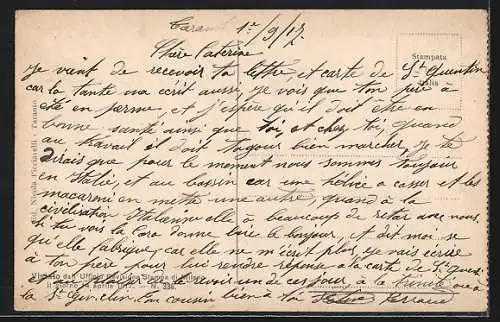 Tarante 1er/9/17
Chère Catherine
Je vient de recevoir ta lettre et carte de St Quentin
Stampata
Italia
car la tante m'a écrit aussi, je vois que ton père à
été en perme et j'espère qu'il doit être en
bonne santé ainsi que toi et chez toi, quand
au travail il doit toujour bien marcher, je te
dirais que pour le moment nous sommes toujour
en Italie, et au bassin car une hélice a casser et les
macaroni en mette une autre, quand à la
civilisation Italienne elle à beaucoups de retar avec nous.
si tu vois la Cora donne lui le bonjour, et dit moi se
qu'elle fabrique car elle ne m'écrit plus, je vais écrire
à ton père pour lui rendre réponse à la carte de St Quentin
revoir un de ces jours à la Trinité ou à
la St Ton cousin bien à toi
Ed. Nicola Piccinelli - Taranto
Visto dall'Ufficio Revisione Stampa di Milano
il giorno 14 aprile 1917. - N. 336.